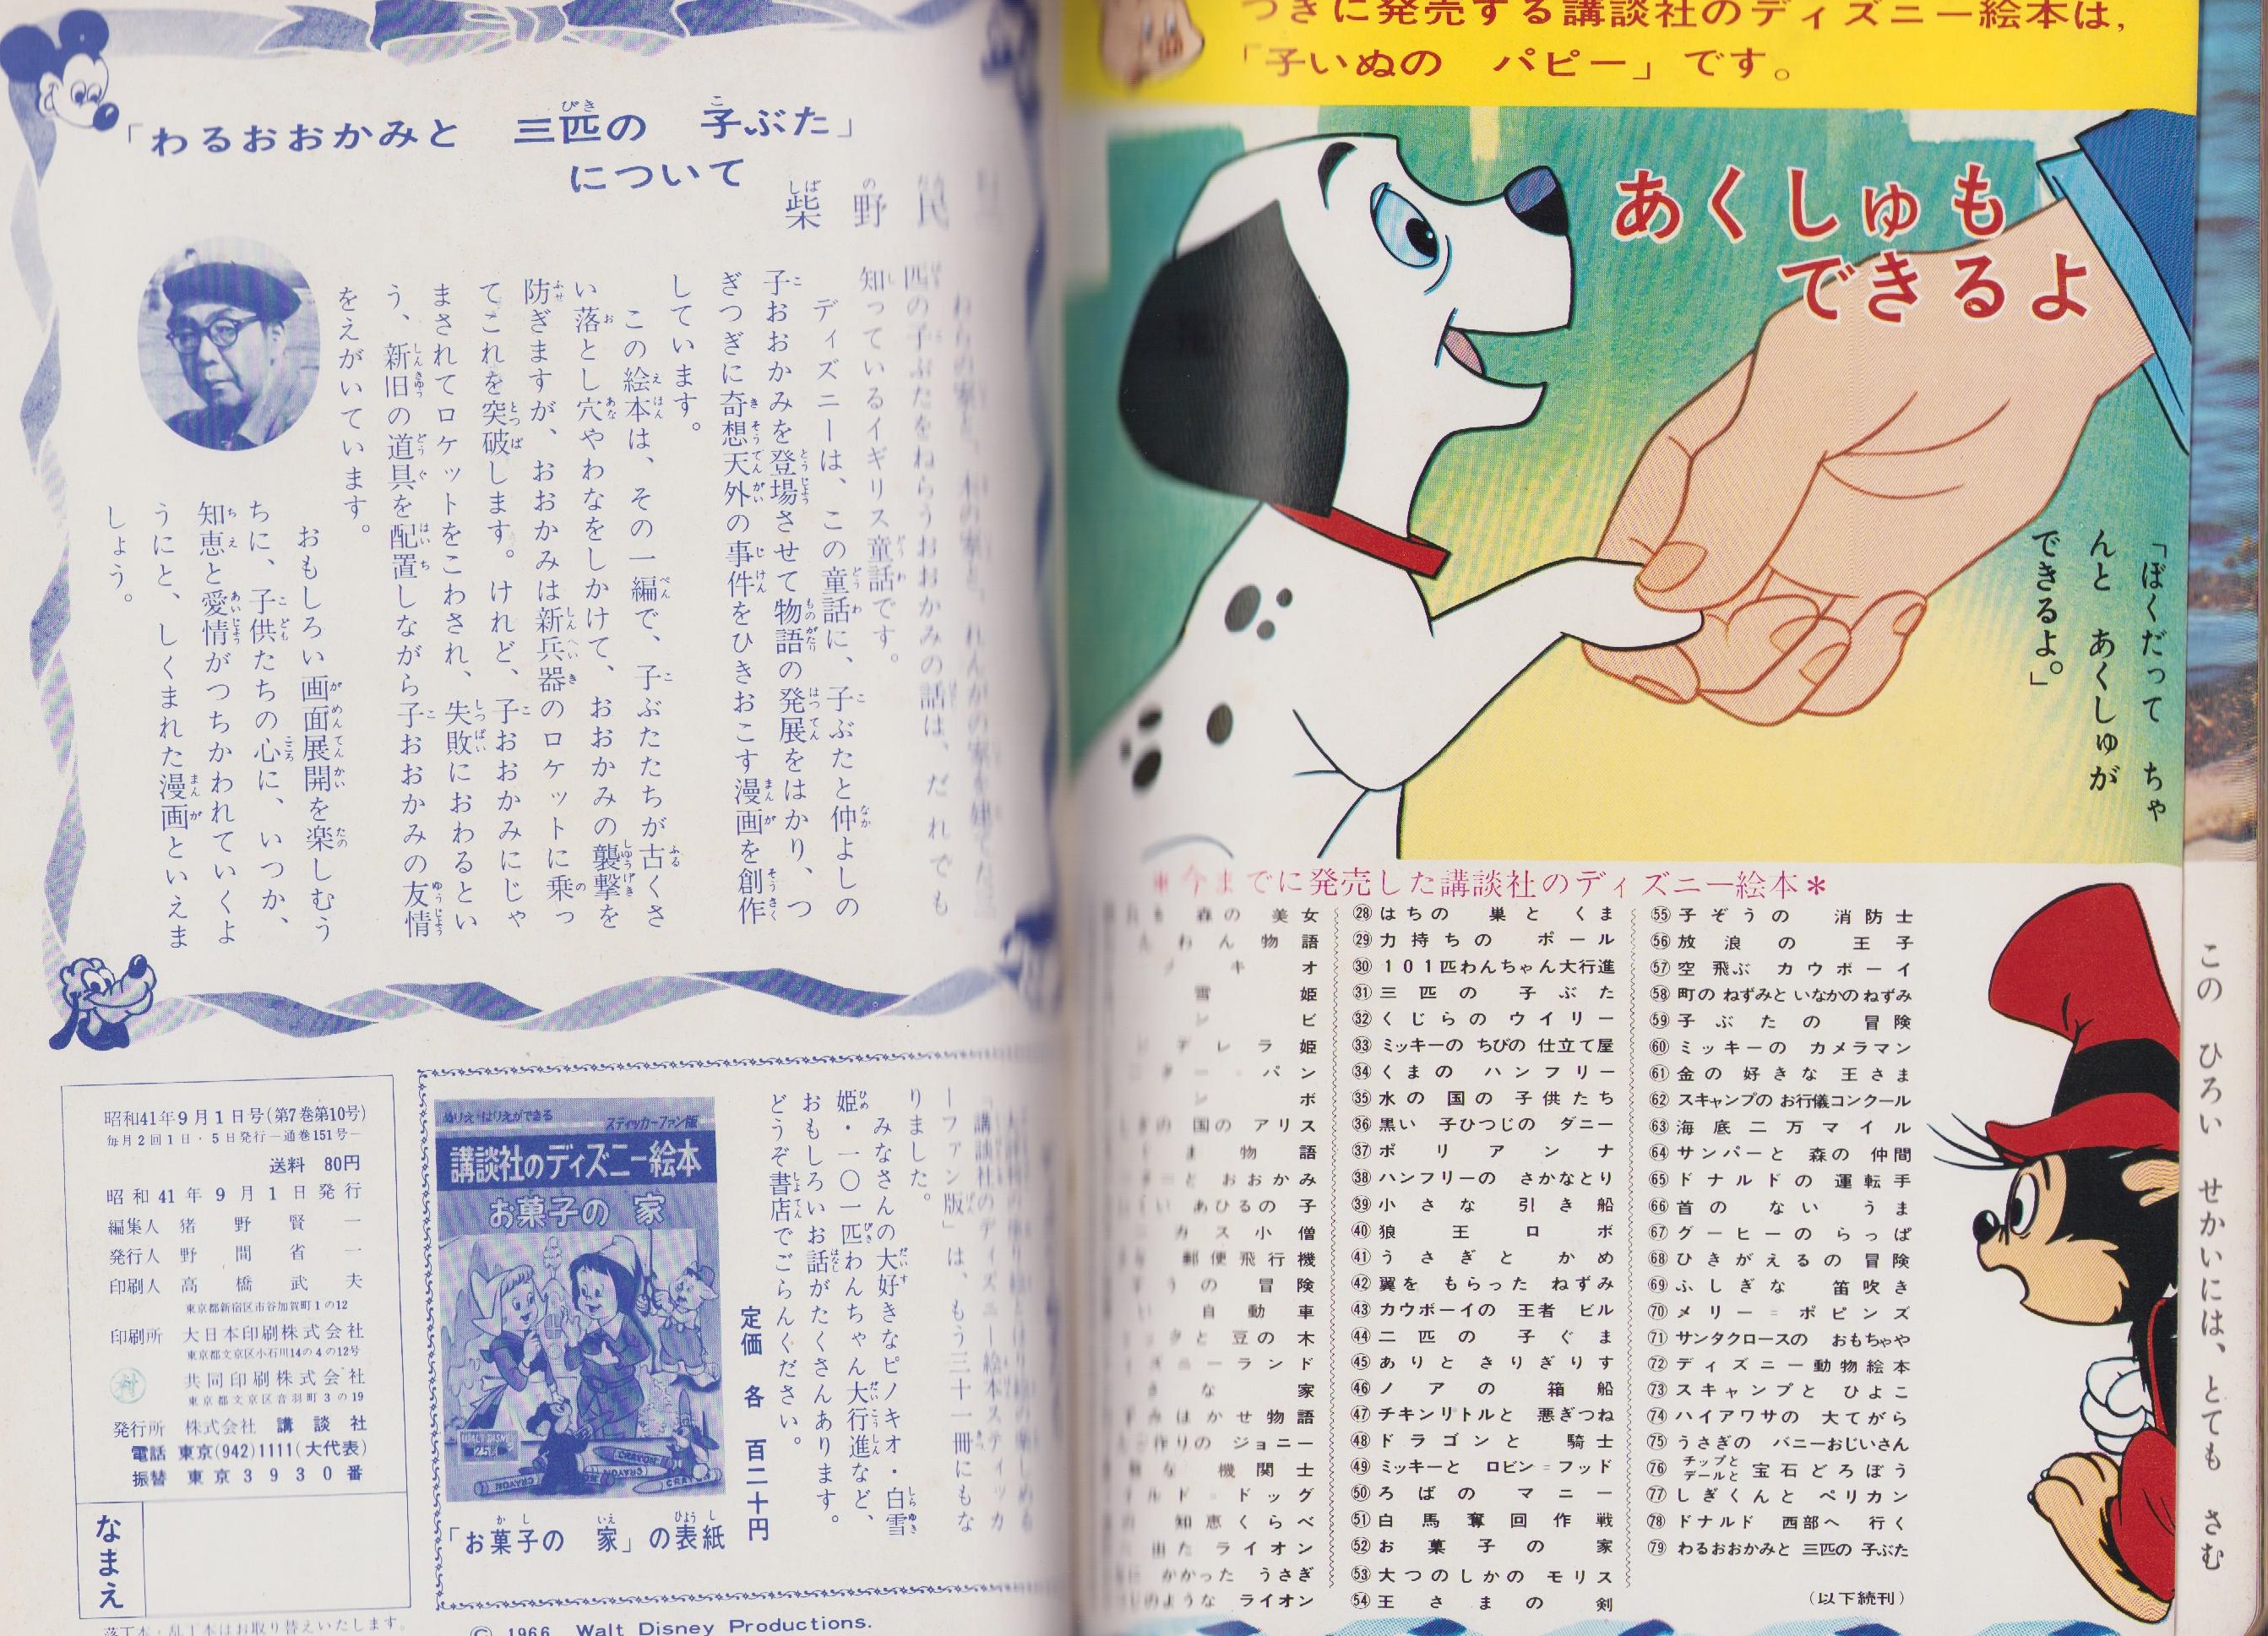 「わるおおかみと 三匹の 子ぶた」
について
柴野民
匹の子ぶたをねらうおおかみの話は、だれでも
知っているイギリス童話です。
ディズニーは、この童話に、子ぶたと仲よしの
子おおかみを登場させて物語の発展をはかり、つ
ぎつぎに奇想天外の事件をひきおこす漫画を創作
しています。
この絵本は、その一編で、子ぶたちが古くさ
い落とし穴やわなをしかけて、おおかみの襲撃を
防ぎますが、おおかみは新兵器のロケットに乗っ
てこれを突破します。けれど、子おおかみにじゃ
まされてロケットをこわされ、失敗におわるとい
う、新旧の道具を配置しながら子おおかみの友情
をえがいています。
おもしろい画面展開を楽しむう
ちに、子供たちの心に、いつか、
知恵と愛情がつちかわれていくよ
うにと、しくまれた漫画といえま
しょう。
昭和41年9月1日号(第7巻第10号)
毎月2回1日・5日発行―通巻151号―
送料 80円
昭和41年9月1日発行
編集人 猪野賢一
発行人 野間省一
印刷人 高橋武夫
東京都新宿区市谷加賀町1の12
印刷所 大日本印刷株式会社
東京都文京区小石川14の4の12号
共同印刷株式会社
東京都文京区音羽町3の19
発行所 株式会社 講談社
電話 東京(942)1111(大代表)
振替 東京3930番
なまえ
落丁本・乱丁本はお取り替えいたします。
「講談社のディズニー絵本スティッカ
ーファン版」は、もう三十一冊にもな
りました。
みなさんの大好きなピノキオ・白雪
姫・一〇一匹わんちゃん大行進など、
おもしろいお話がたくさんあります。
どうぞ書店でごらんください。
定価 各 百二十円
ぬりえ・はりえができる
スティッカーファン版
講談社のディズニー絵本
お菓子の 家
WALT DISNEY
CRAYON
「お菓子の 家」の表紙
© 1966 Walt Disney Productions.
つぎに発売する講談社のディズニー絵本は,
「子いぬの パピー」です。
あくしゅも
できるよ
「ぼくだって ちゃ
んと あくしゅが
できるよ。」
今までに発売した講談社のディズニー絵本＊
森の 美女
わん物語
キオ
雪姫
ビ
デレラ姫
パン
ボ
国の アリス
物語
おおかみ
あひるの 子
カス小僧
郵便飛行機
の 冒険
自動車
と 豆の 木
ニーランド
な 家
はかせ物語
作りの ジョニー
な 機関士
ルド・ドッグ
知恵くらべ
出た ライオン
かかった うさぎ
のような ライオン
㉘はちの 巣と くま
㉙力持ちの ポール
㉚101匹わんちゃん大行進
㉛三匹の 子ぶた
㉜くじらの ウイリー
㉝ミッキーの ちびの 仕立て屋
㉞くまの ハンフリー
㉟水の 国の 子供たち
㊱黒い 子ひつじの ダニー
㊲ポリアンナ
㊳ハンフリーの さかなとり
㊴小さな 引き船
㊵狼王ロボ
㊶うさぎと かめ
㊷翼を もらった ねずみ
㊸カウボーイの 王者 ビル
㊹二匹の 子ぐま
㊺ありと きりぎりす
㊻ノアの 箱船
㊼チキンリトルと 悪ぎつね
㊽ドラゴンと 騎士
㊾ミッキーと ロビン＝フッド
㊿ろばの マニー
(51)白馬奪回作戦
(52)お菓子の 家
(53)大つのしかの モリス
(54)王さまの 剣
(55)子ぞうの 消防士
(56)放浪の 王子
(57)空飛ぶ カウボーイ
(58)町の ねずみと いなかの ねずみ
(59)子ぶたの 冒険
(60)ミッキーの カメラマン
(61)金の 好きな 王さま
(62)スキャンプの お行儀コンクール
(63)海底二万マイル
(64)サンパーと 森の 仲間
(65)ドナルドの 運転手
(66)首の ない うま
(67)グーヒーの らっぱ
(68)ひきがえるの 冒険
(69)ふしぎな 笛吹き
(70)メリー＝ポピンズ
(71)サンタクロースの おもちゃや
(72)ディズニー動物絵本
(73)スキャンプと ひよこ
(74)ハイアワサの 大てがら
(75)うさぎの バニーおじいさん
(76)チップと デールと 宝石どろぼう
(77)しぎくんと ペリカン
(78)ドナルド 西部へ 行く
(79)わるおおかみと 三匹の 子ぶた
(以下続刊)
この ひろい せかいには、とても さむ